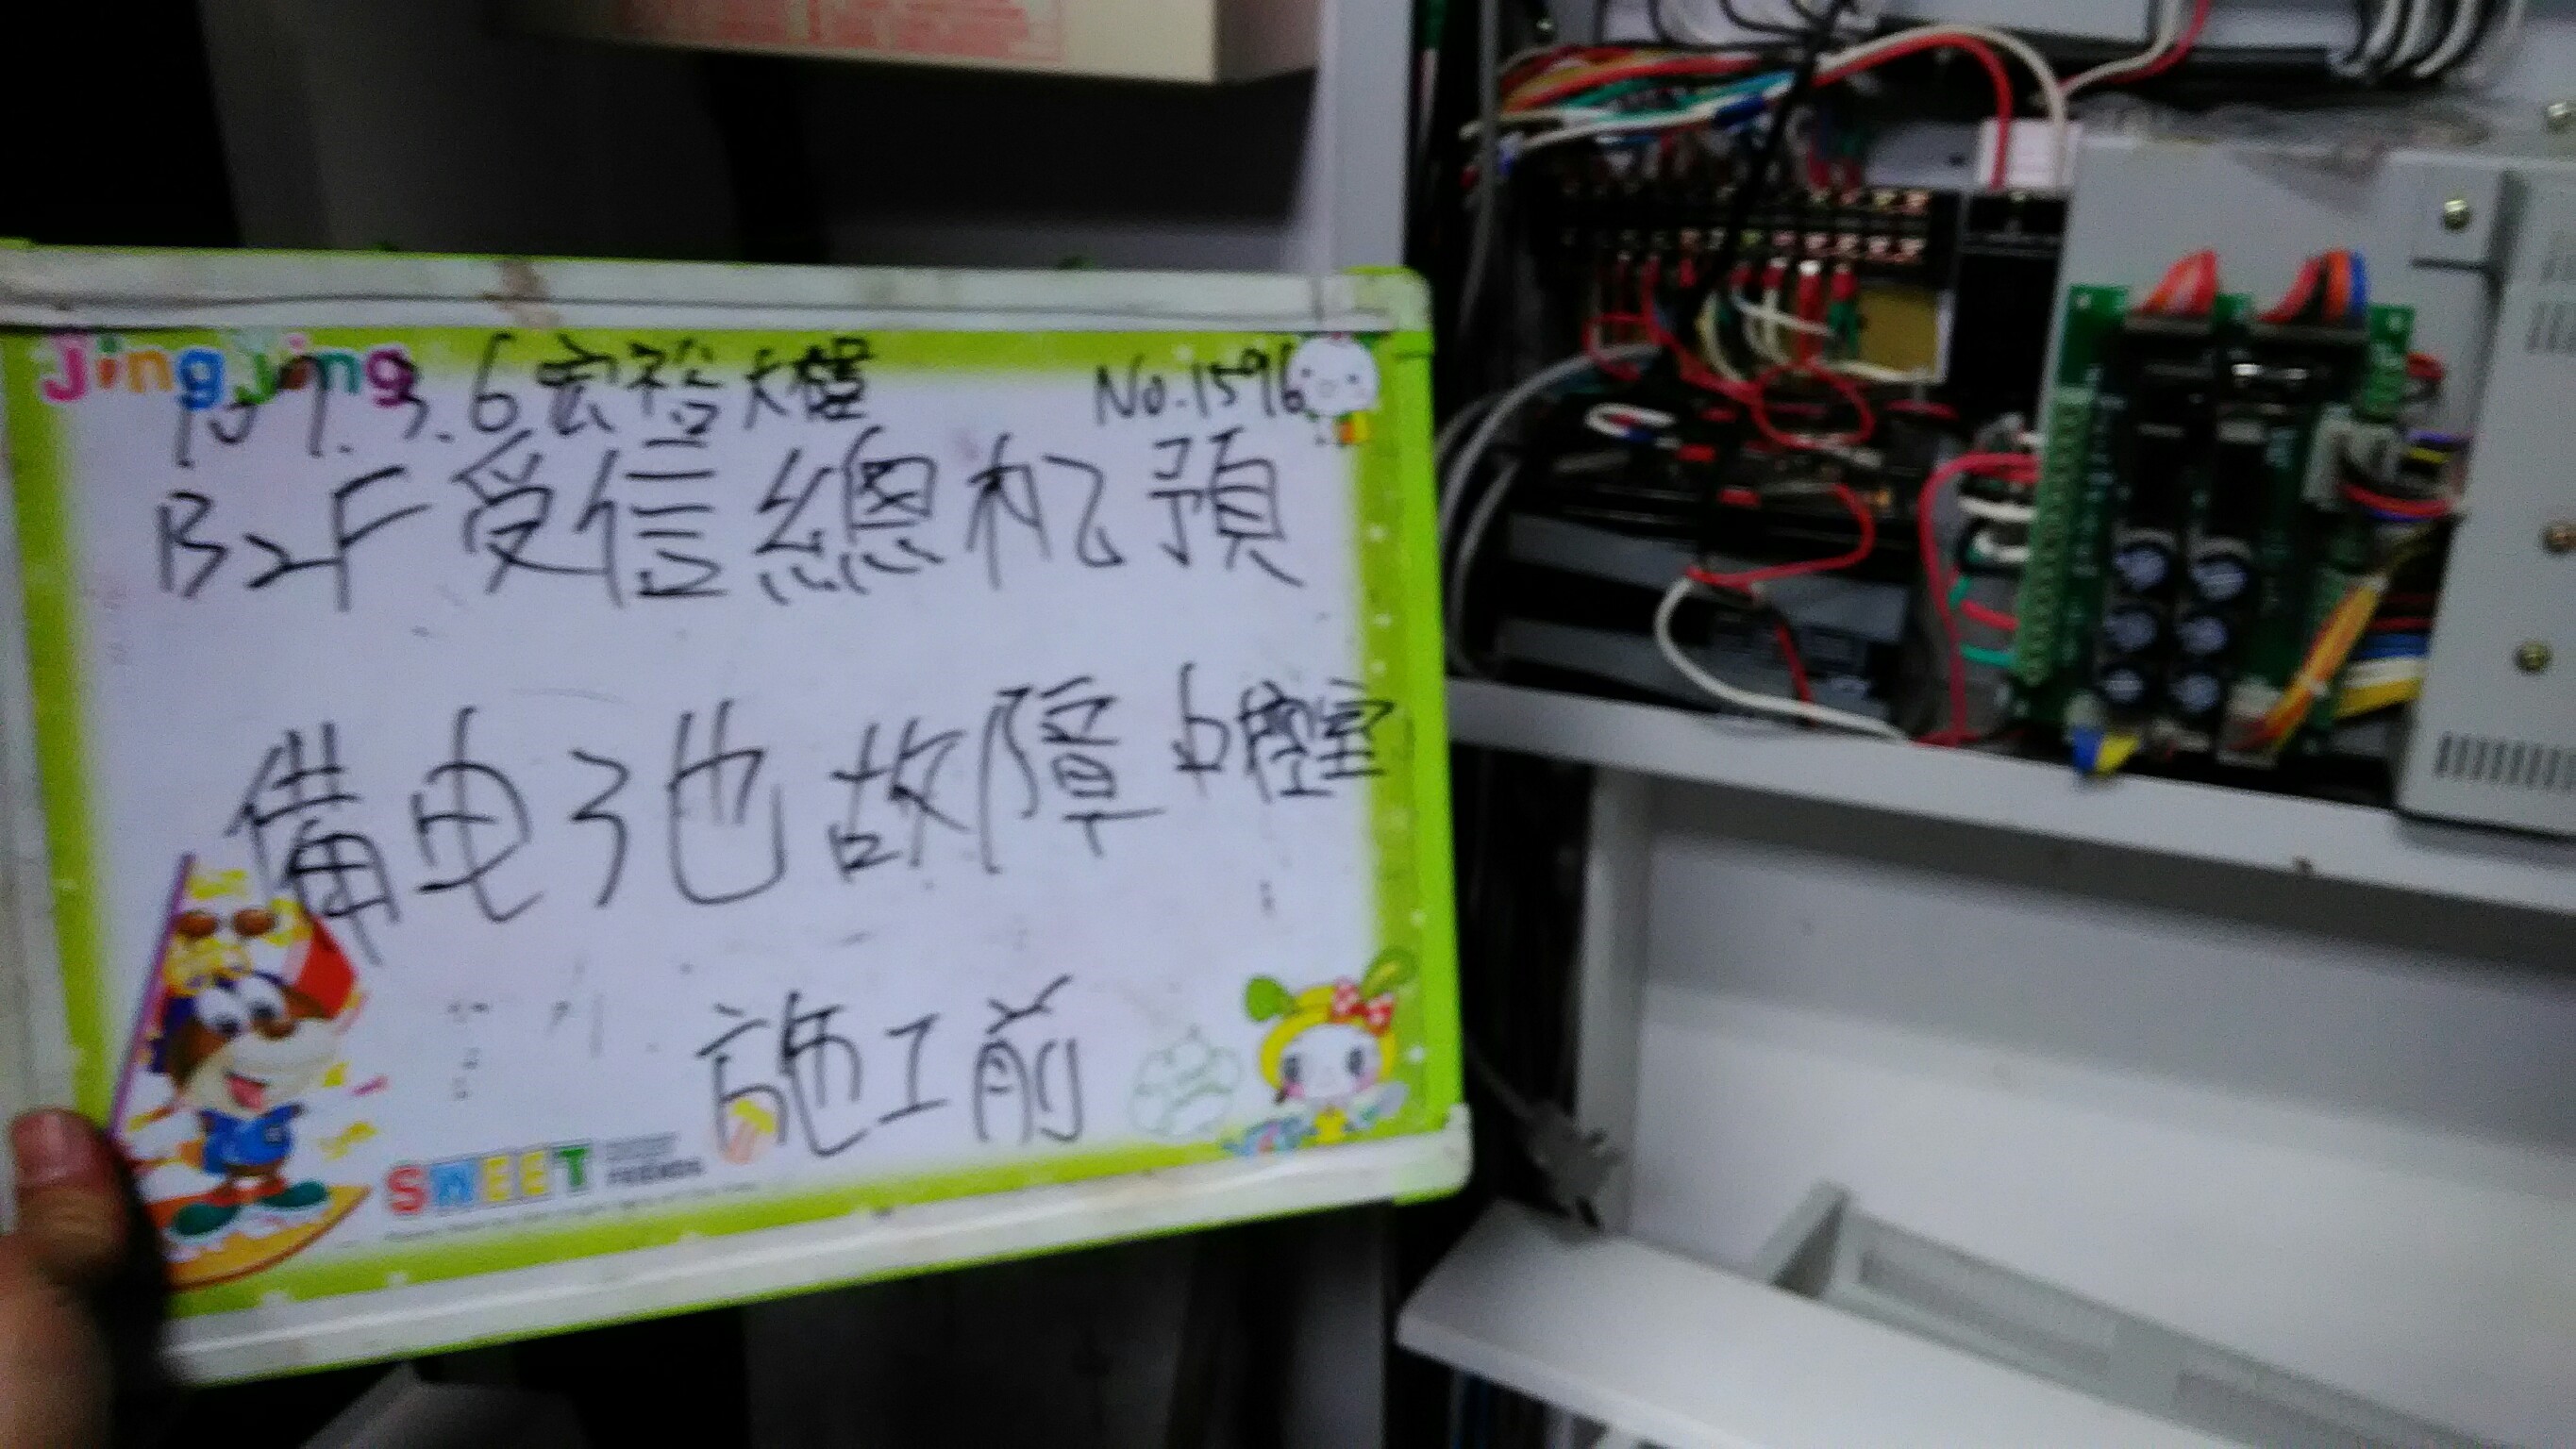 Jing Jing
107.3.6宏裕大樓 No.1596
B2F受信總机預
備电池故障 中控室
施工前
SWEET
FRIENDS